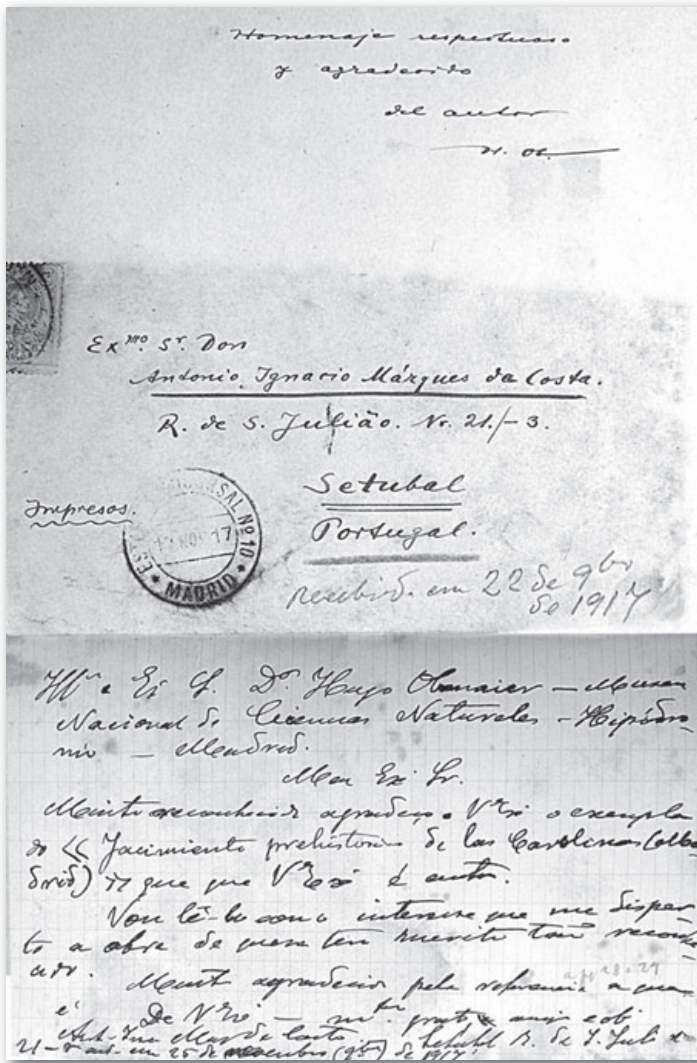 Homenaje respetuoso
y agradecido
del autor
H. Ob.
Exmo. Sr. Don
Antonio Ignacio Márques da Costa.
R. de S. Julião. Nr. 21./-3.
Setubal
Portugal.
Impresos.
SUCURSAL Nº 10
NOV 17
MADRID
Recebido em 22 de 9bro
de 1917
Dr. Hugo Obermaier — Museu
Nacional de Ciencias Naturales - Hipódro-
mo — Madrid.
Meu Exº Sr.
Muito reconhecido agradeço a Vª Exª o exemplar
do << Yacimiento prehistorico de las Carolinas (Ma
drid) de que Vª Exª é autor.
Vou lê-lo com o interesse que me disper-
ta a obra de quem tem merito tão
Muito agradecido pela referencia a que
é De Vª Exª — mto grato
Ant. Ign Marq da Costa Setubal R. de S. Juli
21 - 3º em 25 de novembro (9bro) de 1917